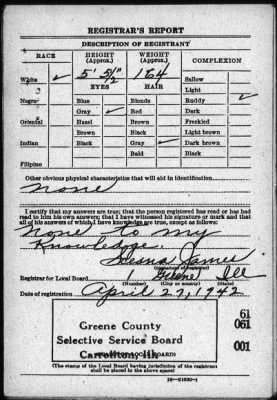 REGISTRAR'S REPORT
DESCRIPTION OF REGISTRANT
RACE HEIGHT (Approx.) WEIGHT (Approx.) COMPLEXION
5' 5½" 164 Sallow
White ✓ EYES HAIR Light
Negro Blue Blonde Ruddy ✓
Gray ✓ Red Dark
Oriental Hazel Brown Freckled
Brown Black Light brown
Indian Black Gray ✓ Dark brown
Bald Black
Filipino
Other obvious physical characteristics that will aid in identification
None
I certify that my answers are true; that the person registered has read or has had
read to him his own answers; that I have witnessed his signature or mark and that
all of his answers of which I have knowledge are true, except as follows:
None to my
Knowledge.
James
(Signature of registrar)
Registrar for Local Board 1 Greene Ill
(Number) (City or county) (State)
Date of registration April 27, 1942
61
Greene County 061
Selective Service Board
Carrollton, Ill. 001
(The stamp of the Local Board having jurisdiction of the registrant
shall be placed in the above space)
16—21630-1